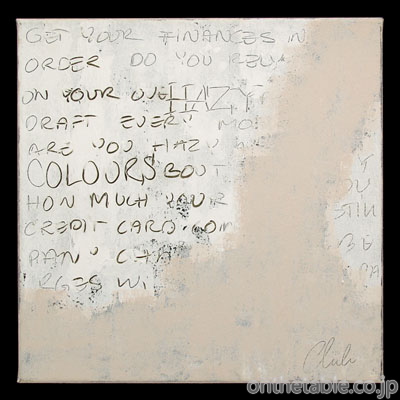 GET YOUR FINANCES IN
ORDER DO YOU RELY
ON YOUR OVE HAZY
DRAFT EVERY MO
ARE YOU HAZY
COLOURS BOUT
HOW MUCH YOUR
CREDIT CARD COM
PANY CHA
RGES WI
onthetable.co.jp